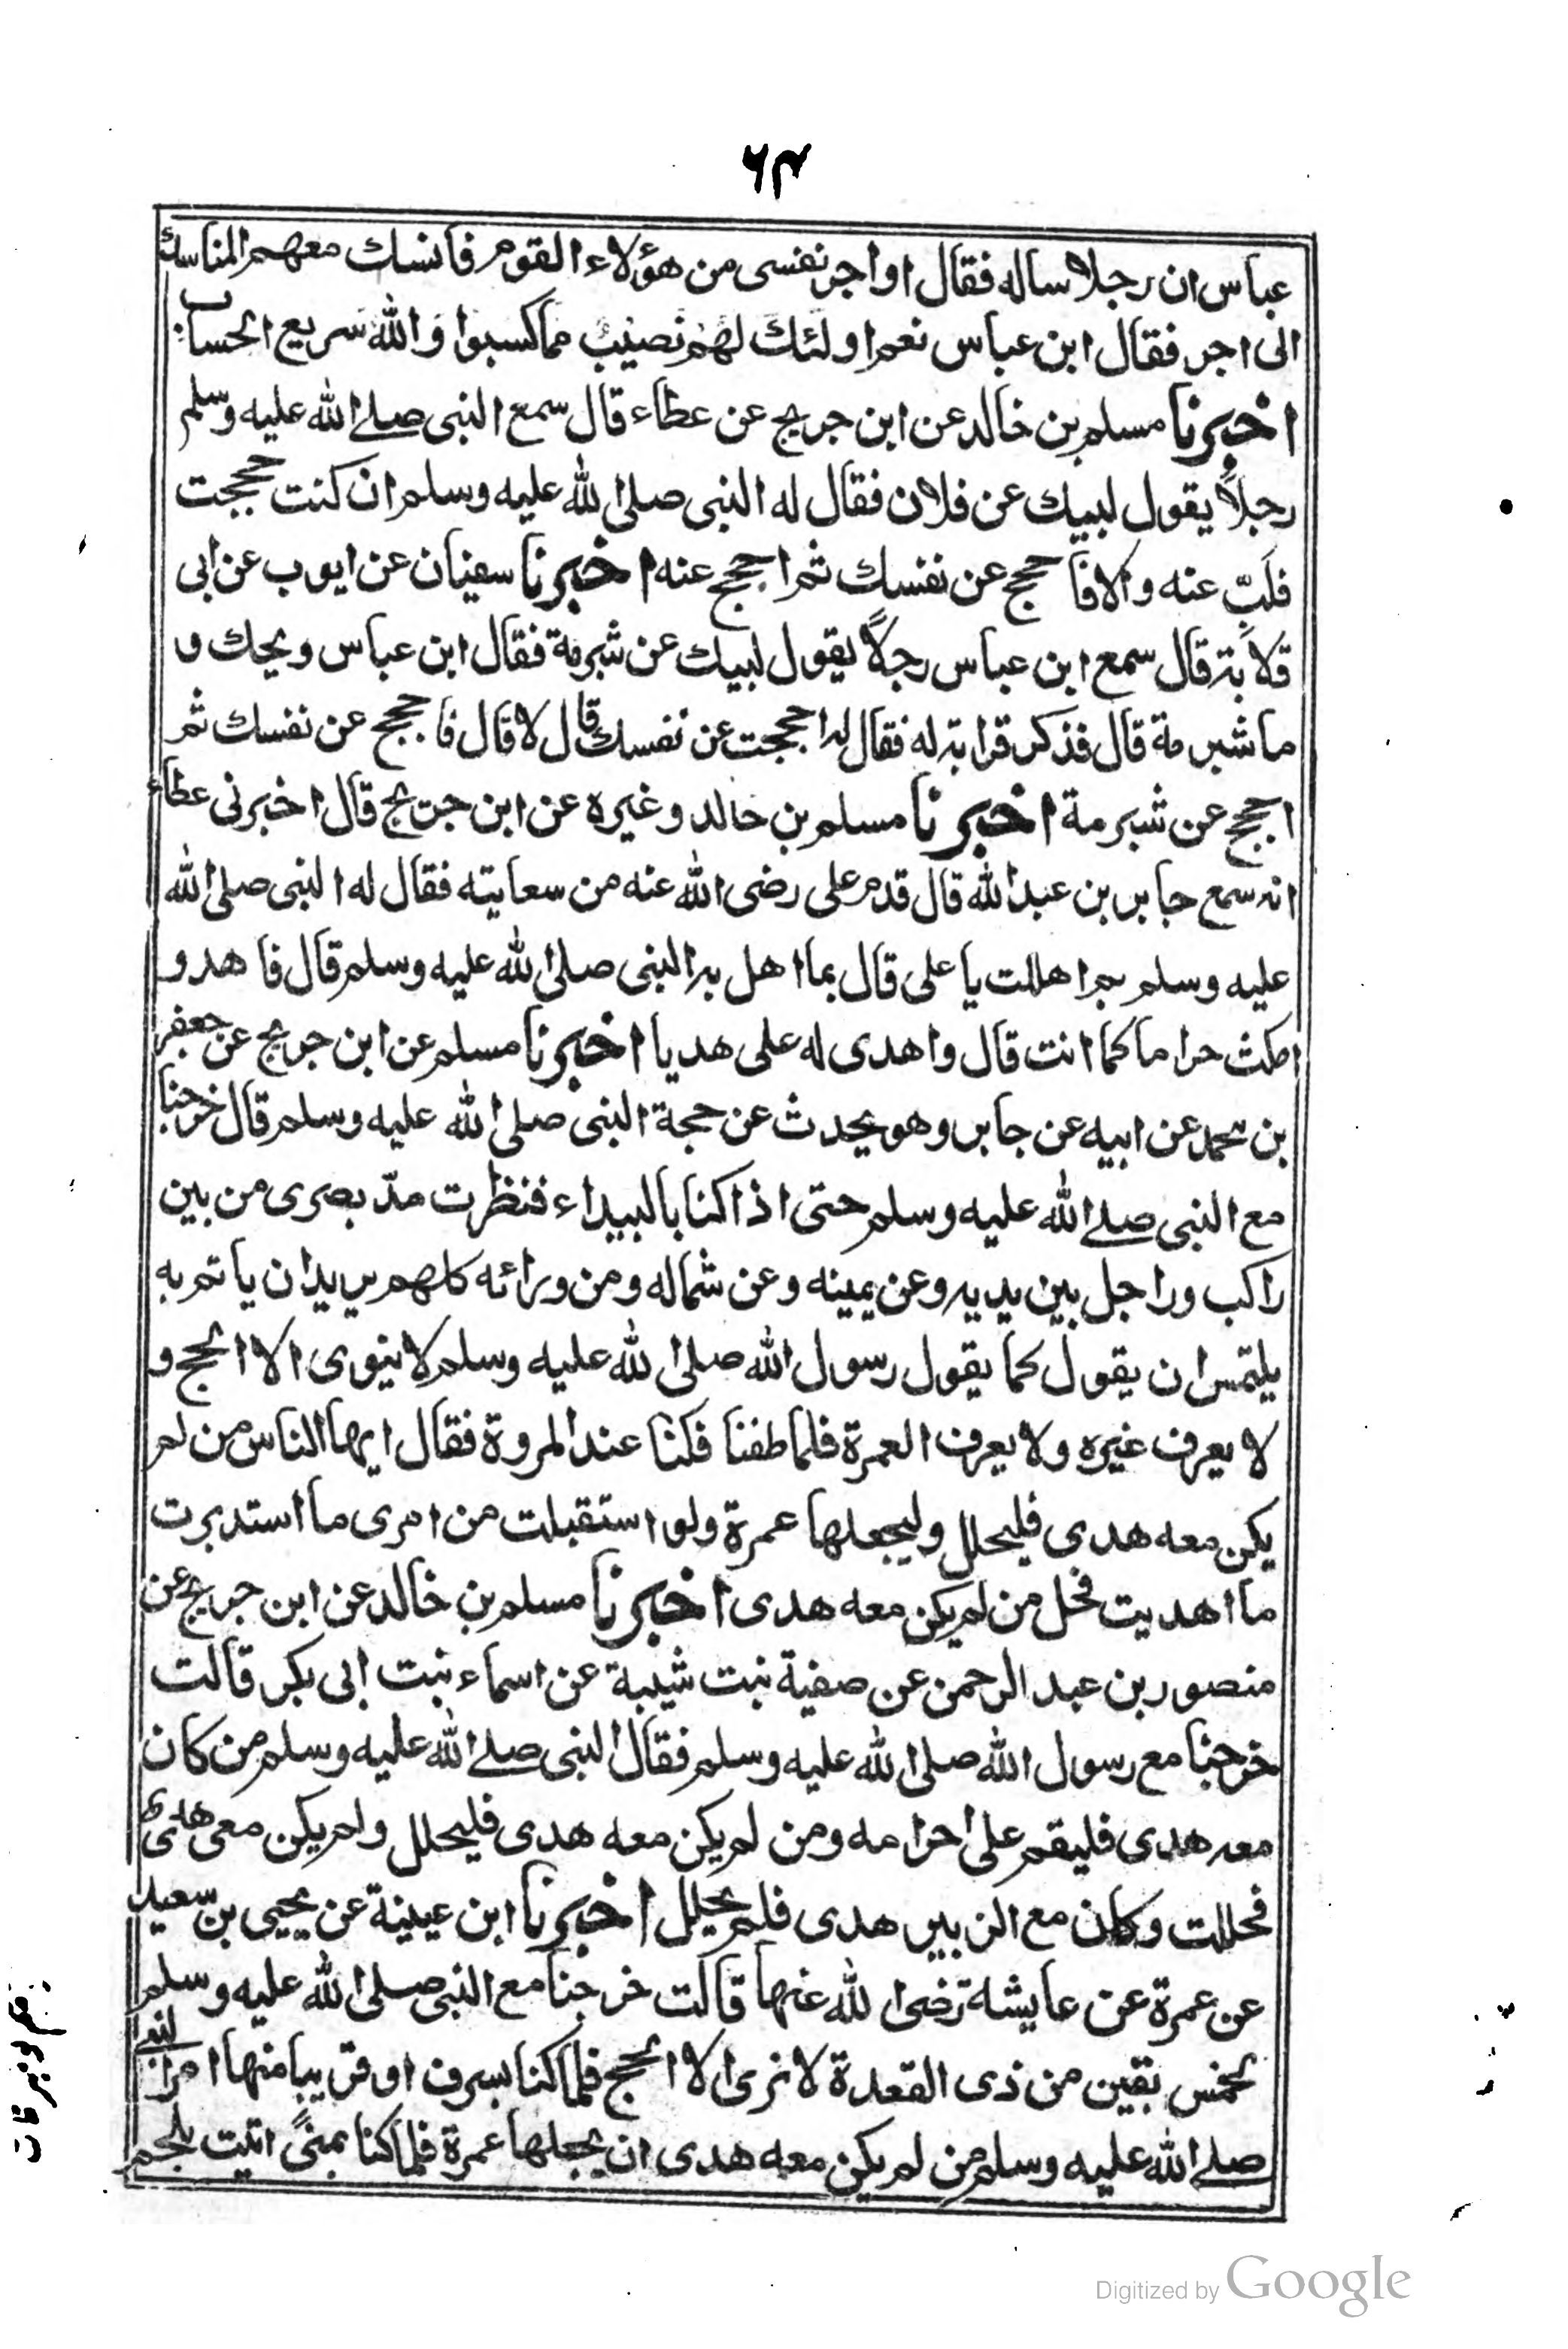 ٦٣
عباس ان رجلا ساله فقال اواجر نفسى من هؤلاء القوم فانسك معهم المناسك
الى اجر فقال ابن عباس نعم اولئك لهم نصيب مما كسبوا والله سريع الحساب
اخبرنا مسلم بن خالد عن ابن جريج عن عطاء قال سمع النبى صلى الله عليه وسلم
رجلاً يقول لبيك عن فلان فقال له النبى صلى الله عليه وسلم ان كنت حججت
فلَبِّ عنه والا فاحجج عن نفسك ثم احجج عنه اخبرنا سفيان عن ايوب عن ابى
قلابة قال سمع ابن عباس رجلاً يقول لبيك عن شبرمة فقال ابن عباس ويحك و
ما شبرمة قال فذكر قرابة له فقال له احججت عن نفسك قال لا قال فاحجج عن نفسك ثم
احجج عن شبرمة اخبرنا مسلم بن خالد وغيره عن ابن جريج قال اخبرنى عطاء
انه سمع جابر بن عبد الله قال قدم على رضى الله عنه من سعايته فقال له النبى صلى الله
عليه وسلم بم اهللت يا على قال بما اهل به النبى صلى الله عليه وسلم قال فاهد و
امكث حراما كما انت قال واهدى له على هديا اخبرنا مسلم عن ابن جريج عن جعفر
بن محمد عن ابيه عن جابر وهو يحدث عن حجة النبى صلى الله عليه وسلم قال خرجنا
مع النبى صلى الله عليه وسلم حتى اذا كنا بالبيداء فنظرت مدّ بصرى من بين
راكب وراجل بين يديه وعن يمينه وعن شماله ومن ورائه كلهم يريد ان ياتم به
يلتمس ان يقول كما يقول رسول الله صلى الله عليه وسلم لا ينوى الا الحج و
لا يعرف غيره ولا يعرف العمرة فلما طفنا فكنا عند المروة فقال ايها الناس من لم
يكن معه هدى فليحلل وليجعلها عمرة ولو استقبلت من امرى ما استدبرت
ما اهديت فحل من لم يكن معه هدى اخبرنا مسلم بن خالد عن ابن جريج عن
منصور بن عبد الرحمن عن صفية بنت شيبة عن اسماء بنت ابى بكر قالت
خرجنا مع رسول الله صلى الله عليه وسلم فقال النبى صلى الله عليه وسلم من كان
معه هدى فليقم على احرامه ومن لم يكن معه هدى فليحلل ولم يكن معى هدى
فحللت وكان مع الزبير هدى فلم يحلل اخبرنا ابن عيينة عن يحيى بن سعيد
عن عمرة عن عايشة رضى الله عنها قالت خرجنا مع النبى صلى الله عليه وسلم
لخمس بقين من ذى القعدة لا نرى الا الحج فلما كنا بسرف او قريبا منها امر النبى
صلى الله عليه وسلم من لم يكن معه هدى ان يجعلها عمرة فلما كنا بمنىً اتيت بلحم
Digitized by Google